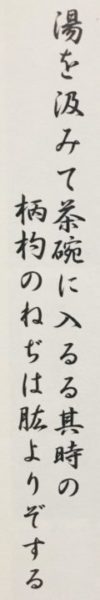 湯を汲みて茶碗に入るる其時の
柄杓のねぢは肱よりぞする